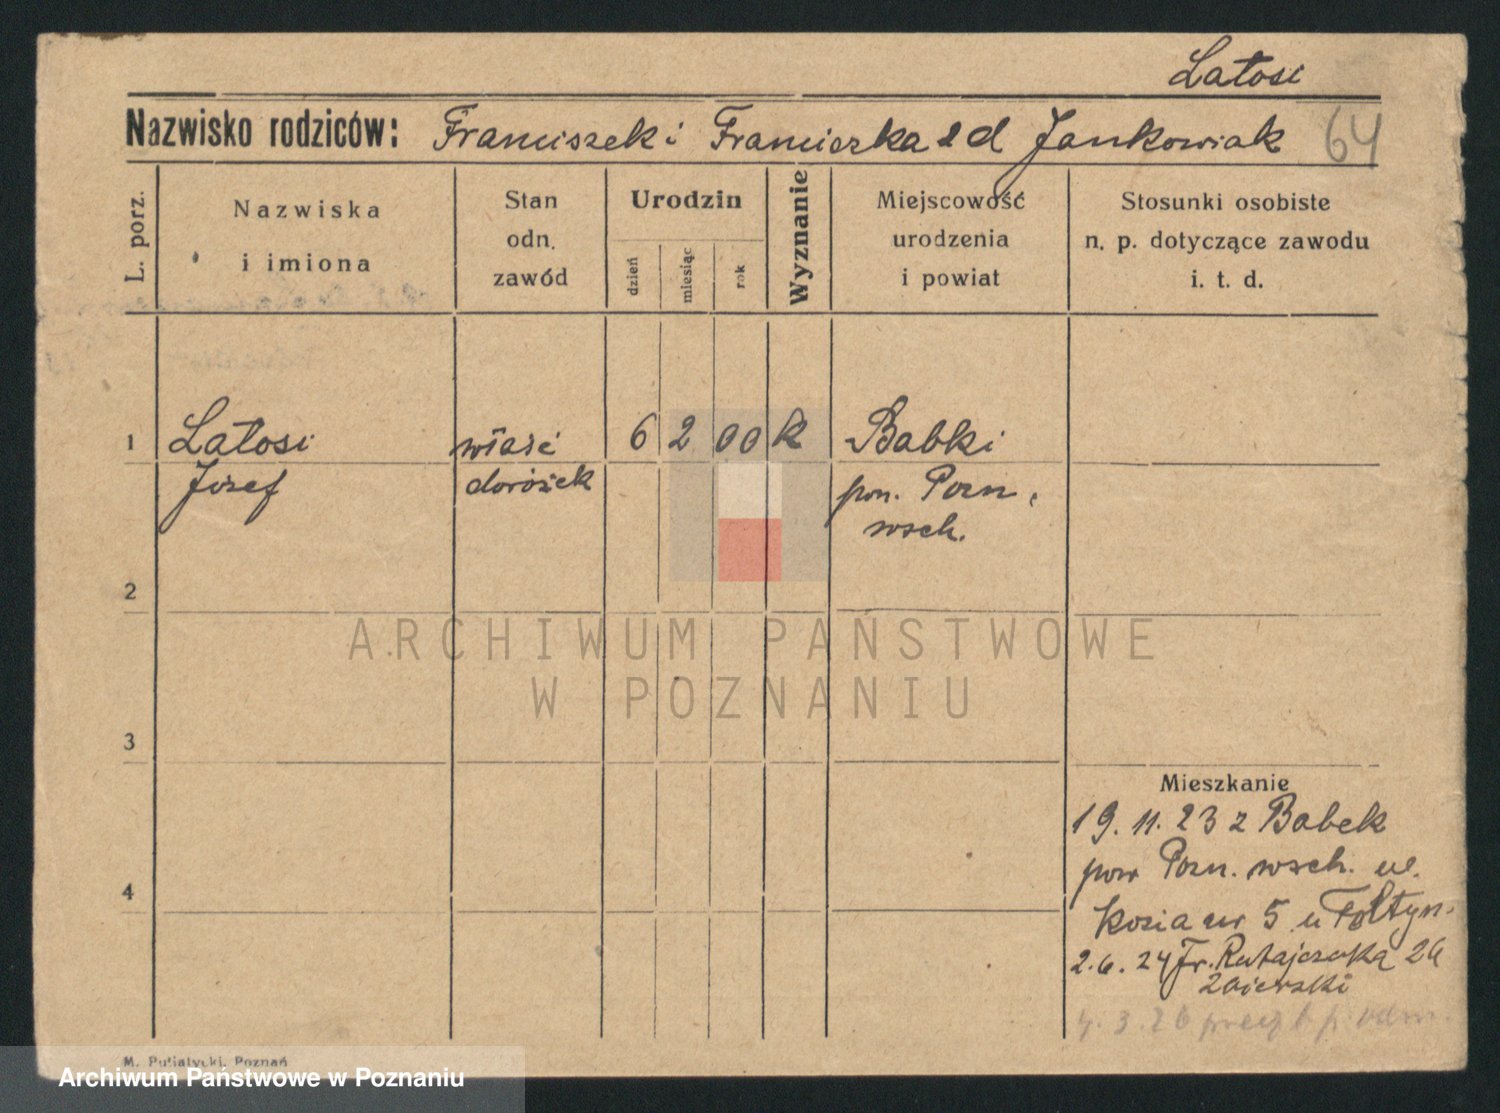 Latosi
Nazwisko rodziców: Franciszek i Franciszka z d Jankowiak 64
L. porz.
Nazwiska
i imiona
Stan
odn.
zawód
Urodzin
dzień
miesiąc
rok
Wyznanie
Miejscowość
urodzenia
i powiat
Stosunki osobiste
n. p. dotyczące zawodu
i. t. d.
1 Latosi właść 6 2 00 k Babki
Józef dorożek pow. Pozn.
wsch.
2
ARCHIWUM PAŃSTWOWE
W POZNANIU
3
Mieszkanie
19. 11. 23 z Babek
pow Pozn. wsch. ul.
4
Kozia nr 5 u Fołtyn.
2. 6. 24 Fr. Ratajczaka 26
4. 3. 26
M. Putiatycki, Poznań
Archiwum Państwowe w Poznaniu